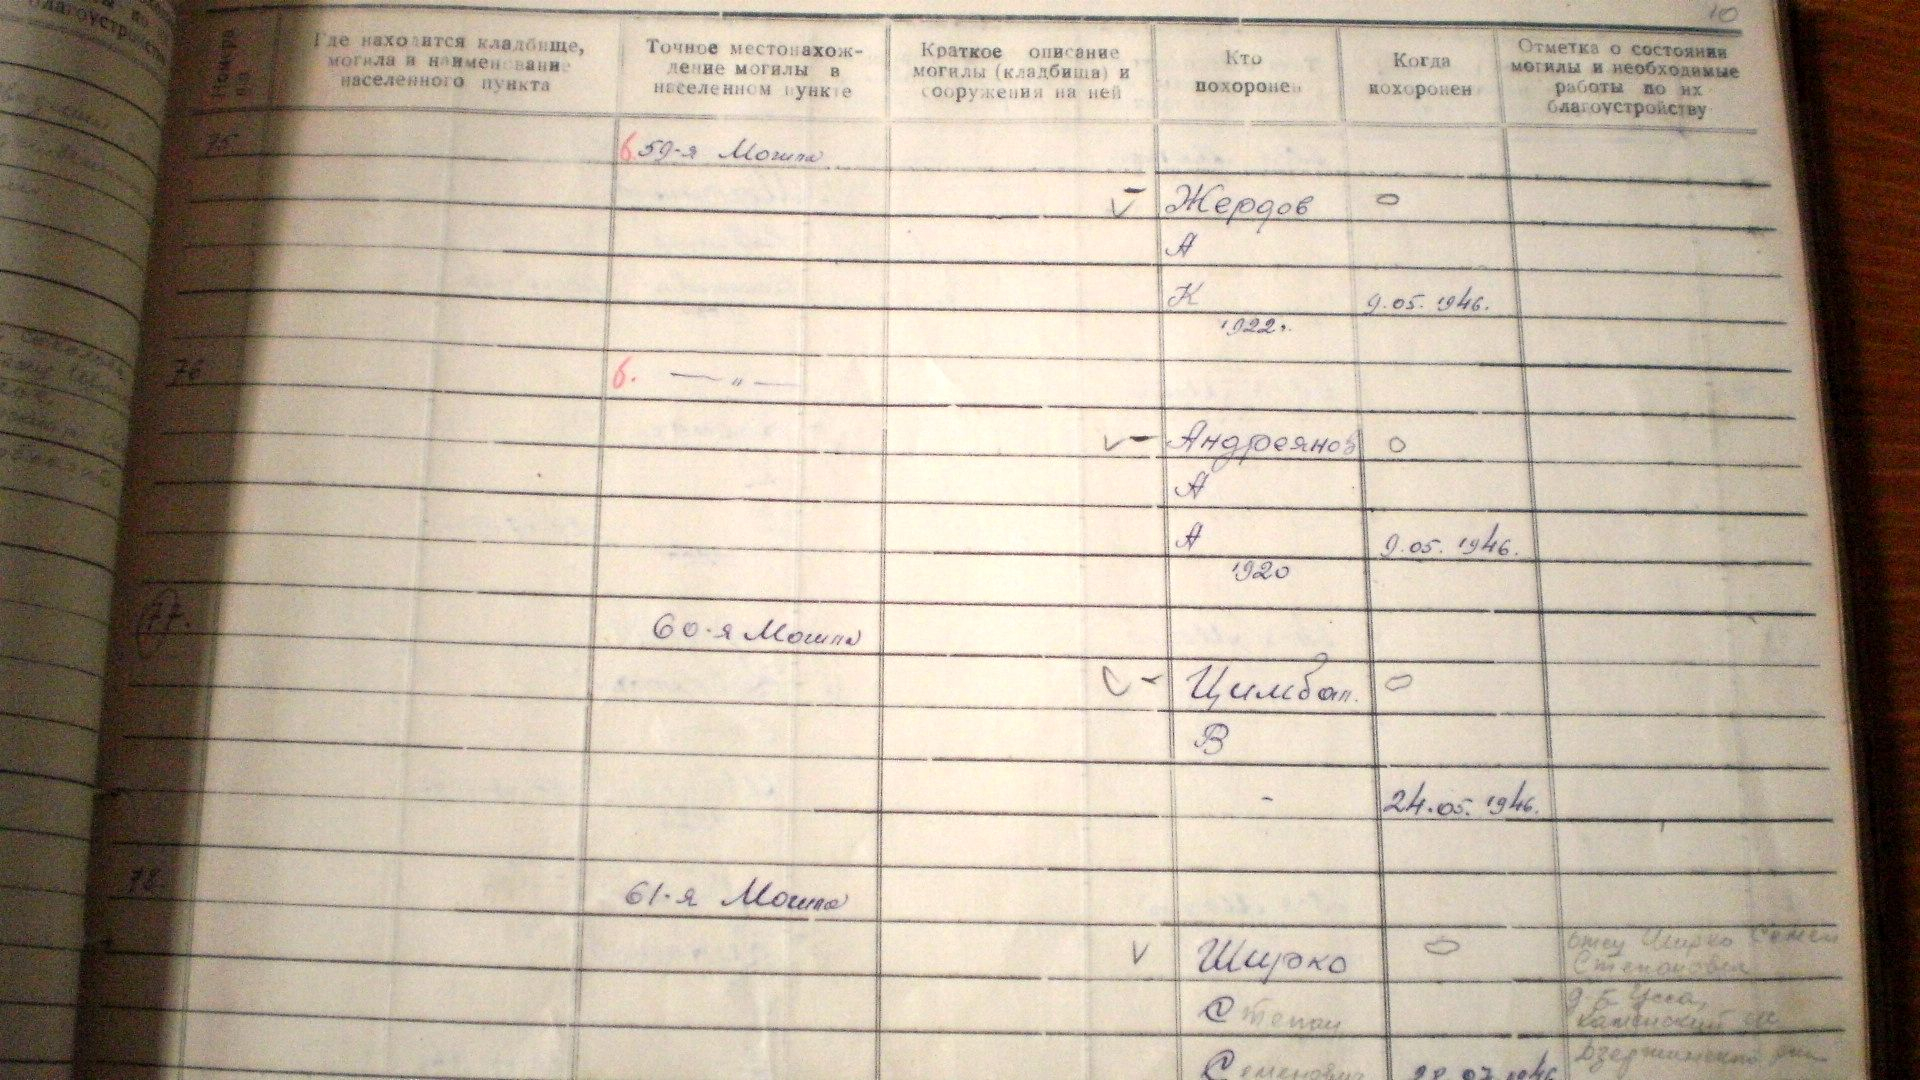 10
Номера
Где находится кладбище,
могила и наименование
населенного пункта
Точное местонахож-
дение могилы в
населенном пункте
Краткое описание
могилы (кладбища) и
сооружения на ней
Кто
похоронен
Когда
похоронен
Отметка о состоянии
могилы и необходимые
работы по их
благоустройству
75 б 59-я Могила
Жердов
А
К 9.05.1946.
1922г.
76 б. — " —
Андреянов
А
А 9.05.1946.
1920
77. 60-я Могила
Цимбал.
В
- 24.05.1946.
78. 61-я Могила
Ширко отец Ширко Семен
Степанович
Степан
Каменский
Семенович 28.07.1946
Дзержинского